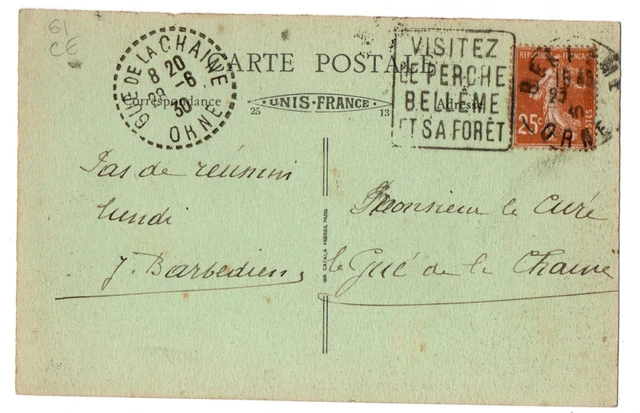 61
CE
GUÉ DE LA CHAINE
8 20
23 -6
30
ORNE
CARTE POSTALE
Correspondance
UNIS-FRANCE
25
13
Adresse
VISITEZ
LE PERCHE
BELLÊME
ET SA FORÊT
REPUBLIQUE
POSTES
25c
ORNE
Pas de réunion
lundi
J. Barbedienne
Monsieur le Curé
le Gué de la Chaine
IMP. CATALA FRÈRES PARIS